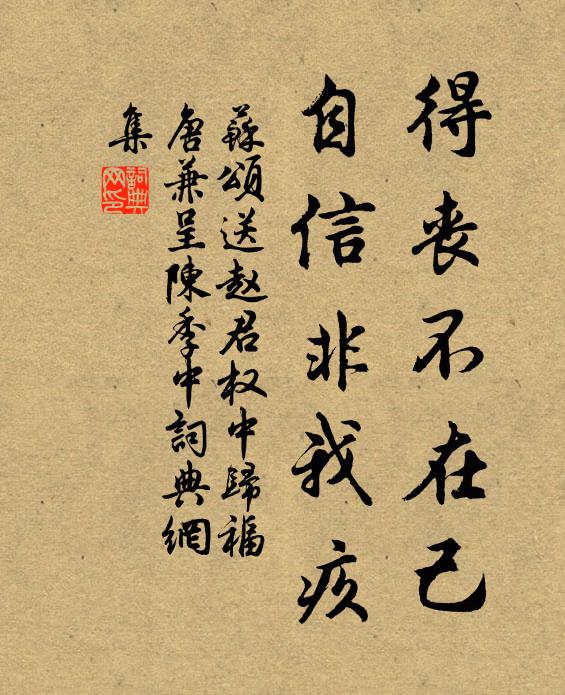 得丧不在己
自信非我疚
蘇頌送赵君权中歸福
唐兼呈陳季中詞典網
集
詞典
网印